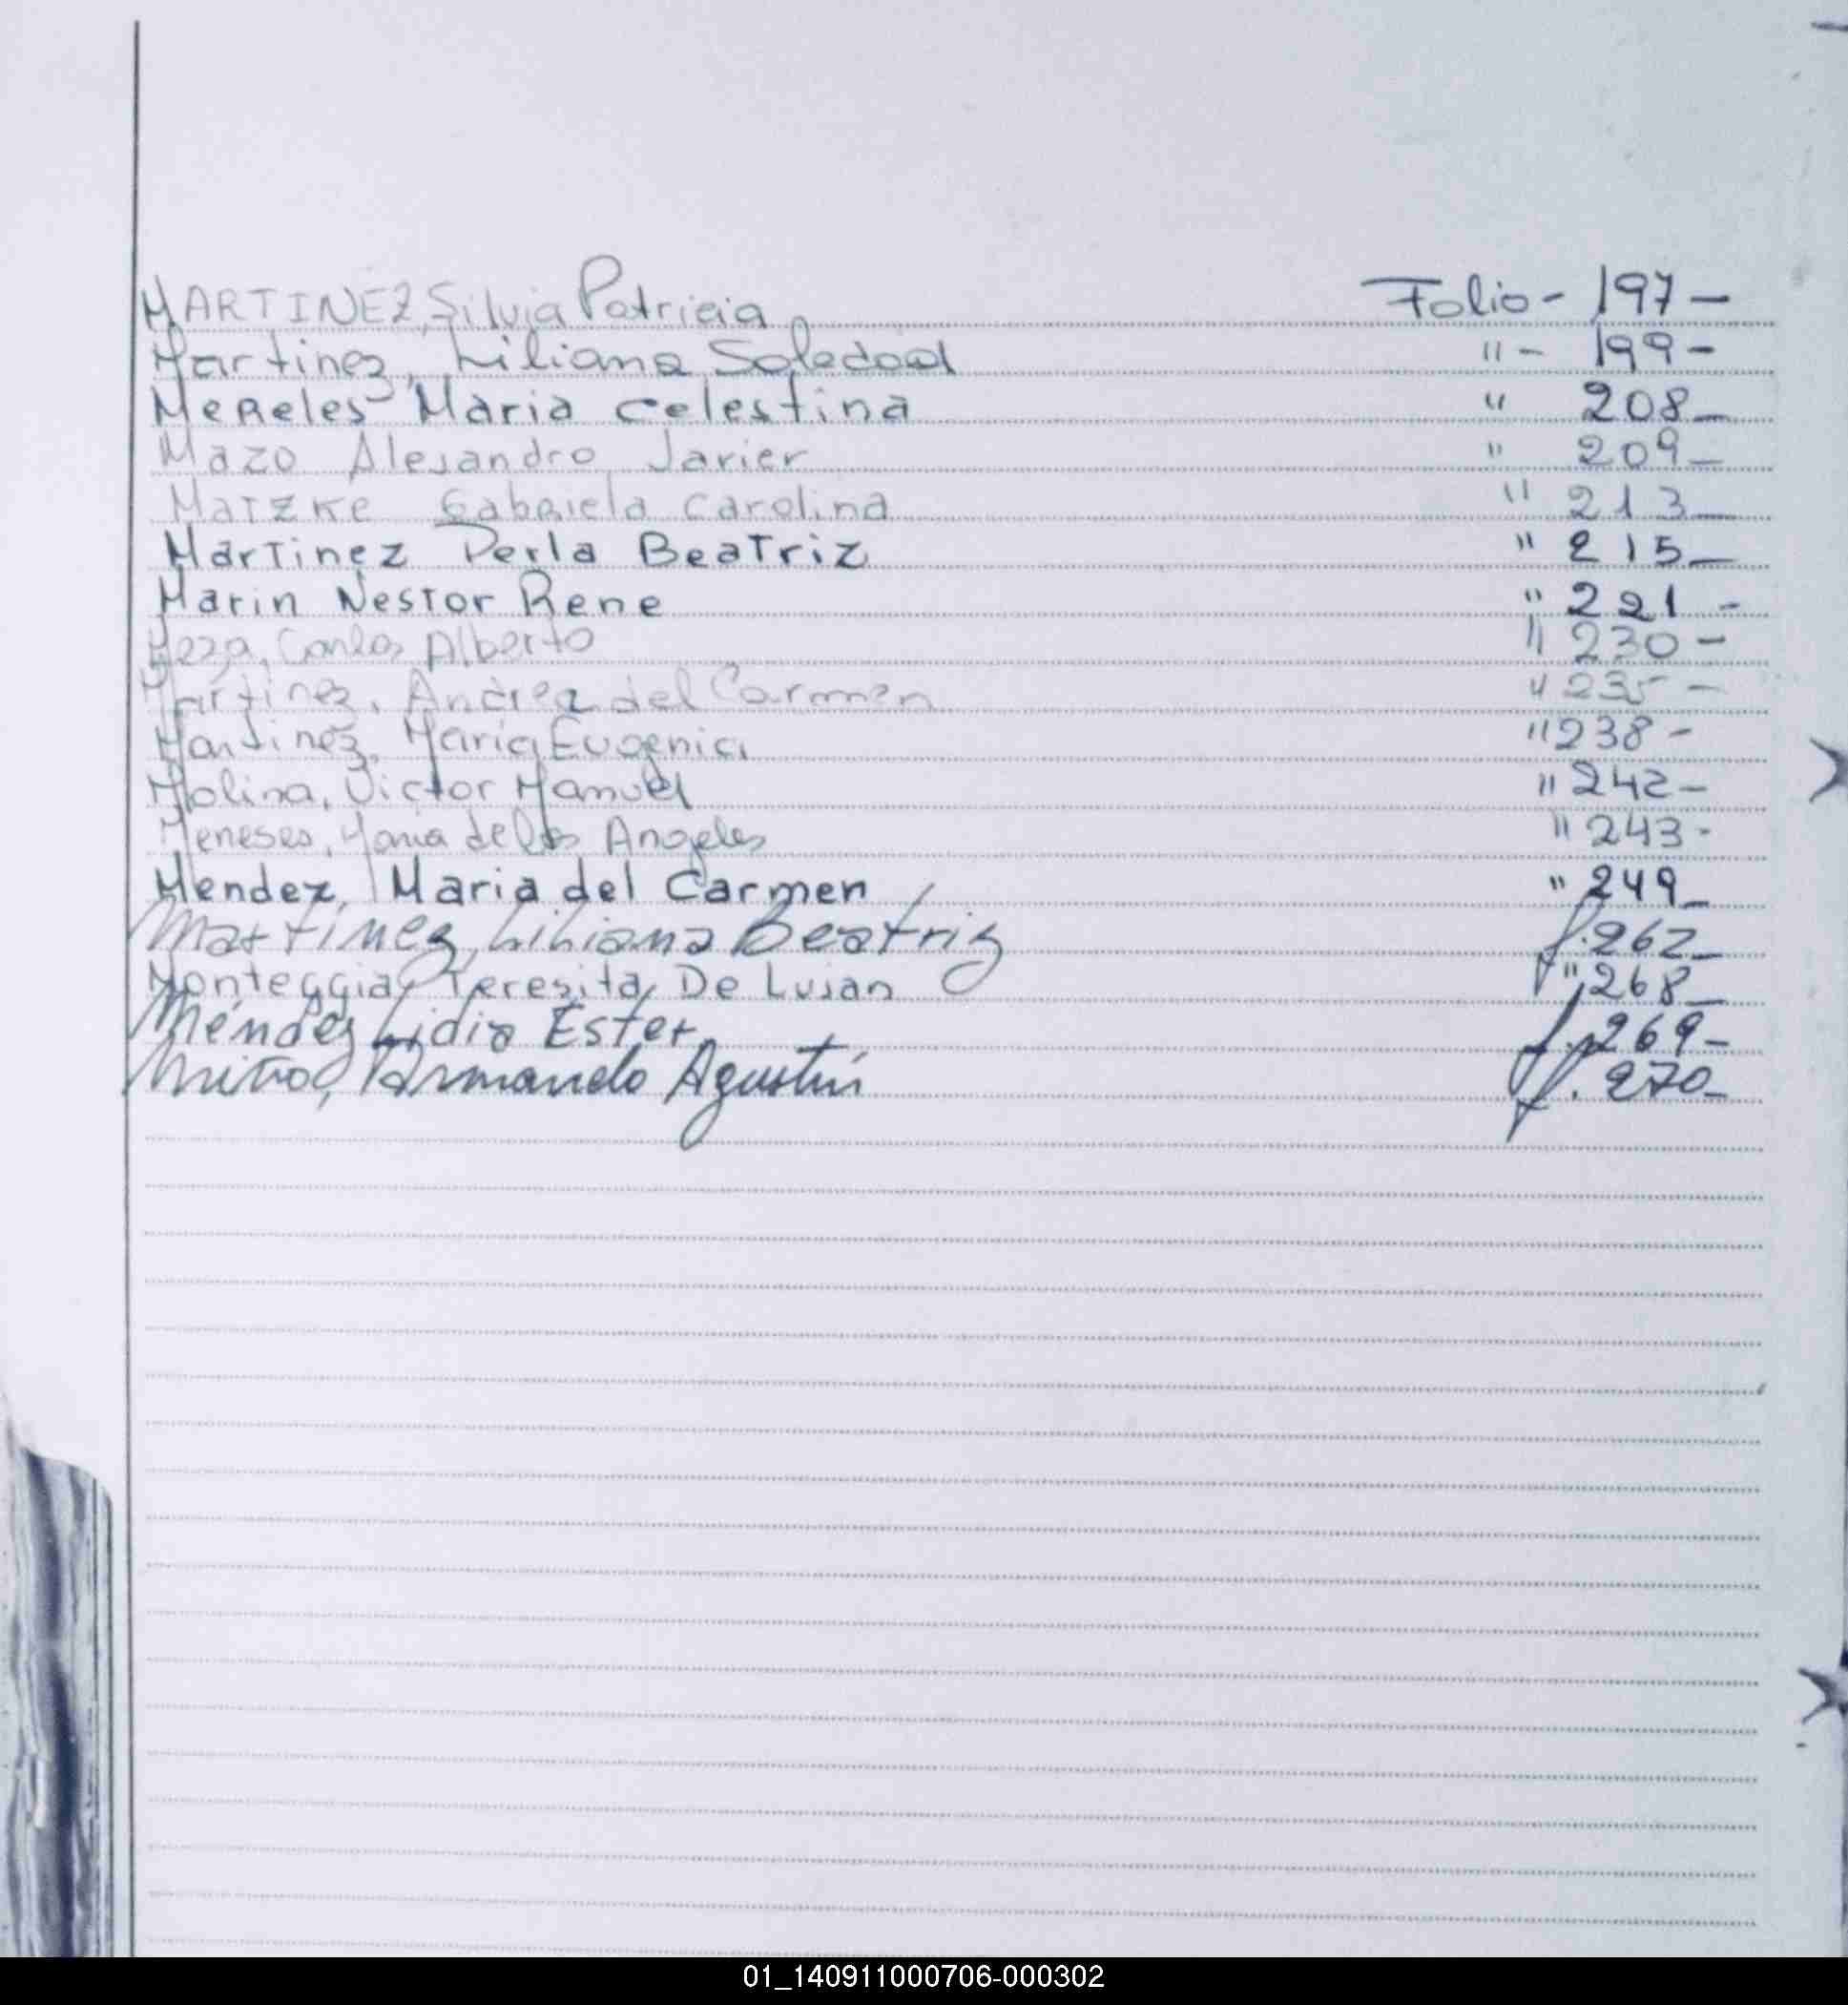 MARTINEZ, Silvia Patricia Folio - 197 -
Martinez, Liliana Soledad " - 199 -
Mereles Maria Celestina " 208 -
Mazo Alejandro Javier " 209 -
Matzke Gabriela Carolina " 213 -
Martinez Perla Beatriz " 215 -
Marin Nestor Rene " 221 -
Meza, Carlos Alberto " 230 -
Martinez, Andrea del Carmen " 235 -
Martinez, María Eugenia " 238 -
Molina, Victor Manuel " 242 -
Meneses, María de los Angeles " 243 -
Mendez, Maria del Carmen " 249 -
Martinez, Liliana Beatriz f. 262 -
Monteggia, Teresita De Lujan " 268 -
Méndez Lidia Ester f. 269 -
Miño, Armando Agustín f. 270 -
01_140911000706-000302